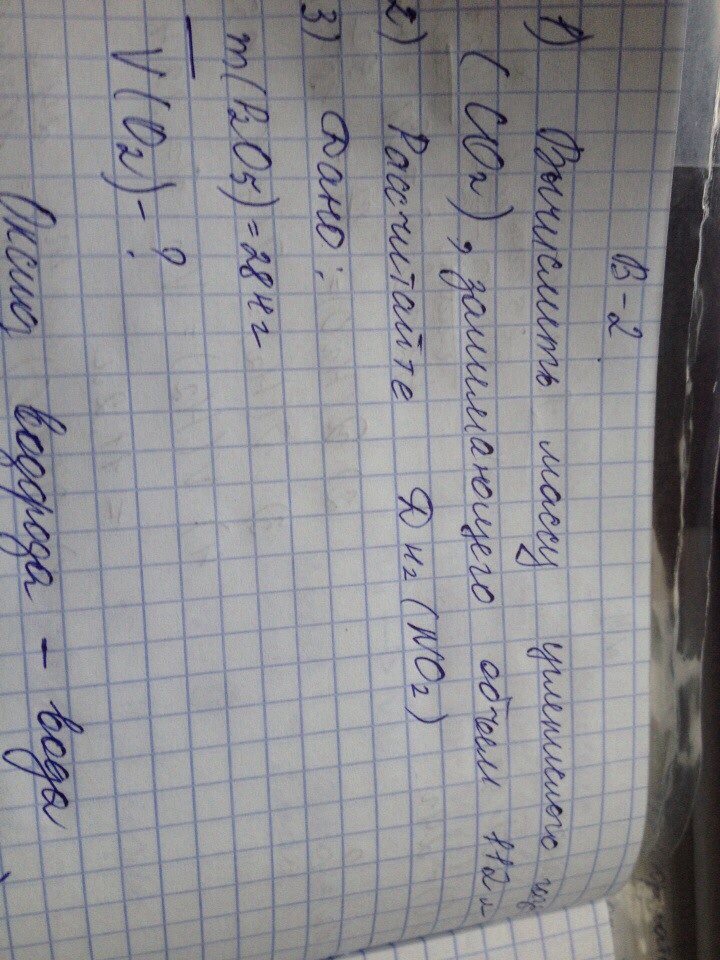 В-2
1) Вычислить массу углекислого газ
(CO₂), занимающего объем 112 л
2) Рассчитайте Д н₂ (NO₂)
3) Дано:
m(P₂O₅) = 284г
V(O₂) - ?
Оксид водорода – вода